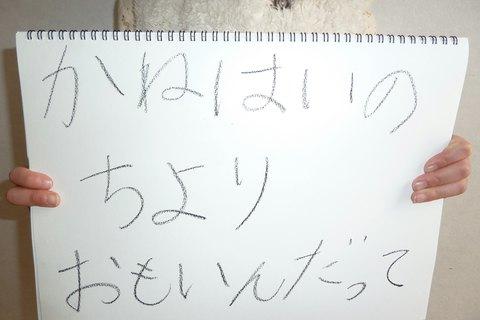 かねはいの
ちより
おもいんだって